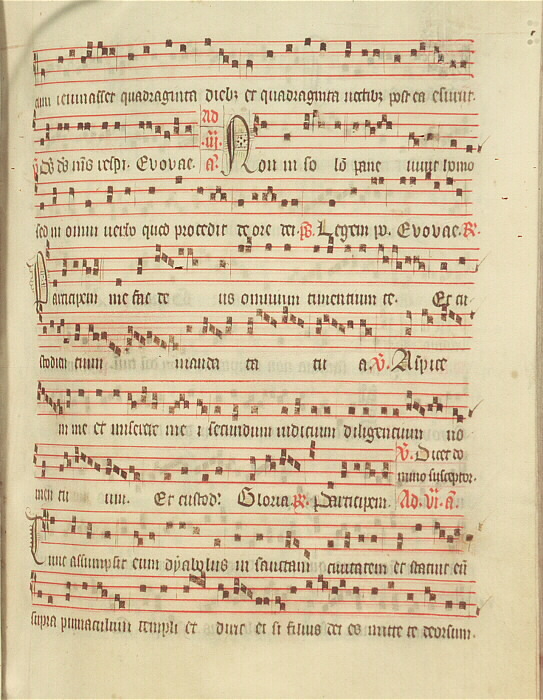 cum ieiunasset quadraginta dieb3 et quadraginta noctib3 post ea esuriit.
Ad
v̄. Ds ds ms respi. Evovae. .iii. a. Non in so lo pane vivit homo
sed in omni verbo quod procedit de ore dei. ps. Legem po. Evovae. R.
Particeps me fac de us omnium timentium te. Et cu
stodien cium manda ta tu a. v. Aspice
in me et miserere me i secundum iudicium diligencium no
v. Dicet do
men tu um. Et custod: Gloria. R. Participem. mino susceptor.
Ad. vi. a.
Tunc assumpsit eum dyabolus in sanctam civitatem et statuit eu
supra pinnaculum templi et dixit ei si filius dei es mitte te deorsum.